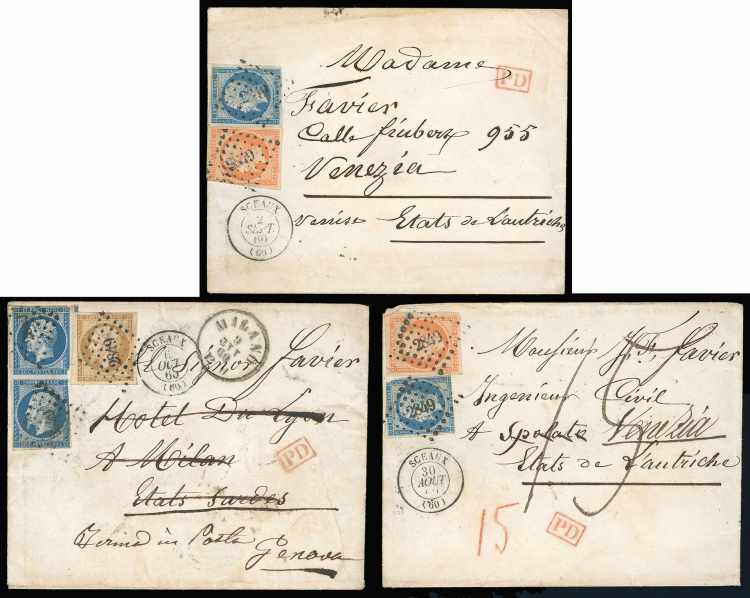 Madame
PD
Favier
Calle fiubera 955
Venezia
SCEAUX
2
SEPT.
60
(60)
Venise Etats de L'autriche
SCEAUX
OCT.
(60)
MILANO
9
Simon Favier
Hotel Du Lyon
A Milan
PD
Etats sardes
Ferma in Posta
Genova
2849
2849
Monsieur J. F. Favier
Ingenieur Civil
A Spalato Venezia
Etats de L'autriche
SCEAUX
30
AOUT
(60)
15
15
PD